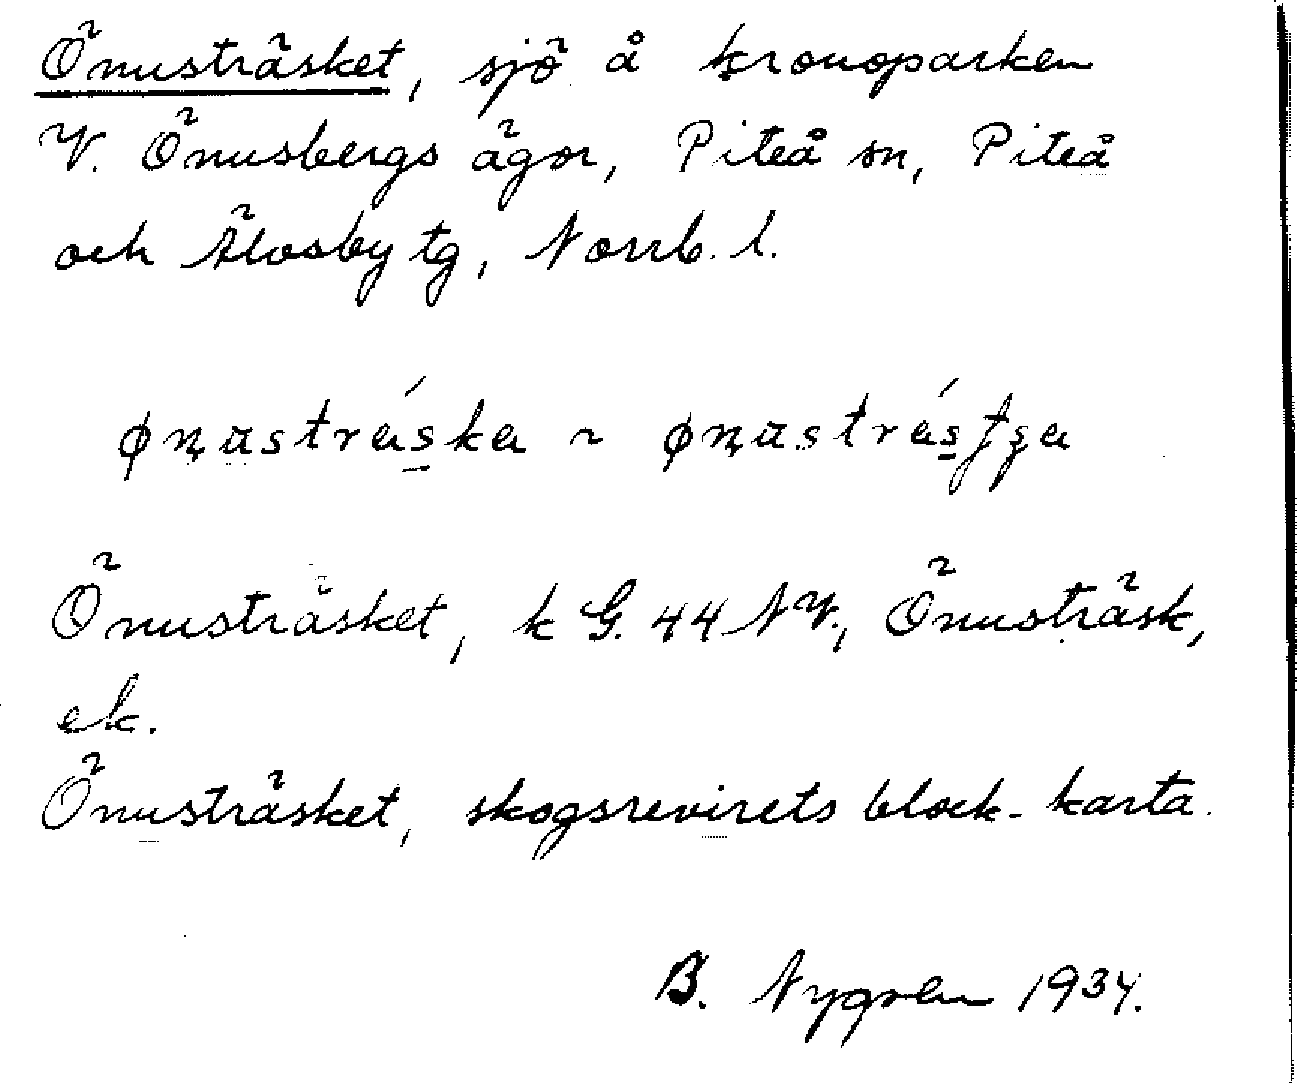 Önusträsket, sjö å kronoparken
V. Önusbergs ägor, Piteå sn, Piteå
och Älvsby tg, Norrb. l.
ønastráska ~ ønastrásʃʂa
Önusträsket, k G. 44 NV., Önusträsk,
ek.
Önusträsket, skogsrevirets block-karta.
B. Nygren 1934.